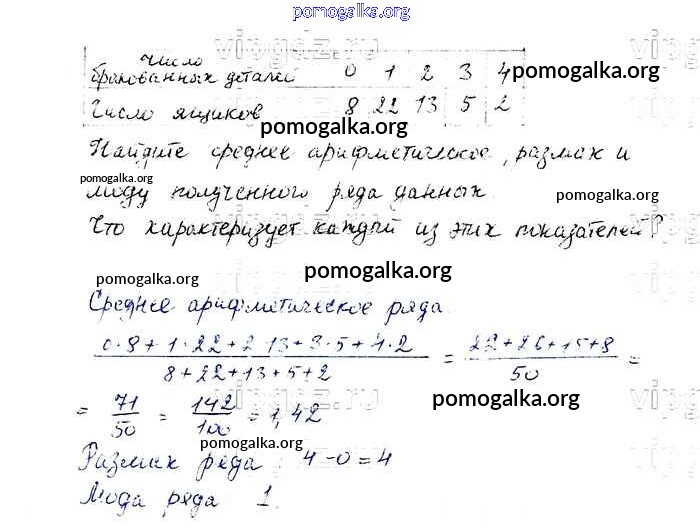 pomogalka.org
Число
бракованных деталей 0 1 2 3 4
pomogalka.org
Число ящиков 8 22 13 5 2
pomogalka.org
Найдите среднее арифметическое, размах и
pomogalka.org
моду полученного ряда данных.
pomogalka.org
Что характеризует каждый из этих показателей?
pomogalka.org
pomogalka.org
Среднее арифметическое ряда
0·8+1·22+2·13+3·5+4·2 / 8+22+13+5+2 = 22+26+15+8 / 50 =
= 71/50 = 142/100 = 1,42
pomogalka.org
pomogalka.org
Размах ряда: 4-0=4
Мода ряда 1.